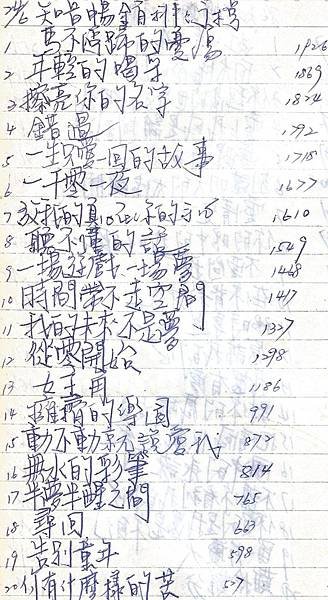 1 馬不停蹄的憂傷 1926
2 年輕的喝采 1869
3 擦亮你的名字 1824
4 錯過 1792
5 一生只愛一回的故事 1718
6 一千零一夜 1677
7 我的真心你的 1610
8 聽不懂的話 1549
9 一場遊戲一場夢 1448
10 時間帶不走空間 1417
11 我的未來不是夢 1327
12 從零開始 1298
13 女主角 1186
14 瘖瘂的樂園 991
15 動不動就說愛我 872
16 無水的彩筆 814
17 半夢半醒之間 765
18 尋回 663
19 告別童年 598
20 你有什麼樣的苦 527